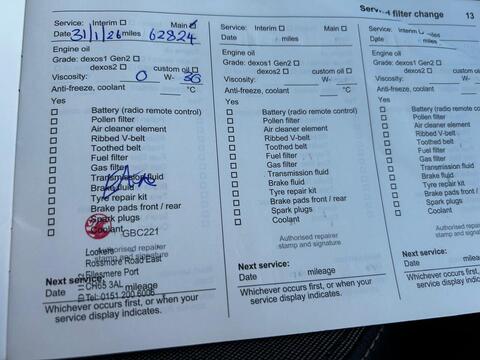 Service and filter change 13
Service: Interim ☐ Main ☑
Date 31/1/26 miles 62824
Engine oil
Grade: dexos1 Gen2 ☐
dexos2 ☐ custom oil ☐
Viscosity: 0 W-
Anti-freeze, coolant °C
Yes
☐ Battery (radio remote control)
☐ Pollen filter
☐ Air cleaner element
☐ Ribbed V-belt
☐ Toothed belt
☐ Fuel filter
☐ Gas filter
☐ Transmission fluid
☐ Brake fluid
☐ Tyre repair kit
☐ Brake pads front / rear
☐ Spark plugs
☐ Coolant
GBC221
Authorised repairer
stamp and signature
Lookers
Rossmore Road East
Ellesmere Port
CH65 3AL
Tel: 0151 200 6006
Next service:
Date mileage
Whichever occurs first, or when your
service display indicates.
Service: Interim ☐ Main ☐
Date miles
Engine oil
Grade: dexos1 Gen2 ☐
dexos2 ☐ custom oil ☐
Viscosity: W-
Anti-freeze, coolant °C
Yes
☐ Battery (radio remote control)
☐ Pollen filter
☐ Air cleaner element
☐ Ribbed V-belt
☐ Toothed belt
☐ Fuel filter
☐ Gas filter
☐ Transmission fluid
☐ Brake fluid
☐ Tyre repair kit
☐ Brake pads front / rear
☐ Spark plugs
☐ Coolant
Authorised repairer
stamp and signature
Next service:
Date mileage
Whichever occurs first, or when your
service display indicates.
Service: Interim ☐
Date miles
Engine oil
Grade: dexos1 Gen2 ☐
dexos2 ☐ custom
Viscosity:
Anti-freeze, coolant
Yes
☐ Battery (radio remote
☐ Pollen filter
☐ Air cleaner element
☐ Ribbed V-belt
☐ Toothed belt
☐ Fuel filter
☐ Gas filter
☐ Transmission fluid
☐ Brake fluid
☐ Tyre repair kit
☐ Brake pads front /
☐ Spark plugs
☐ Coolant
Authorised
stamp and
Next service:
Date mileage
Whichever occurs first, or
service display indicates.